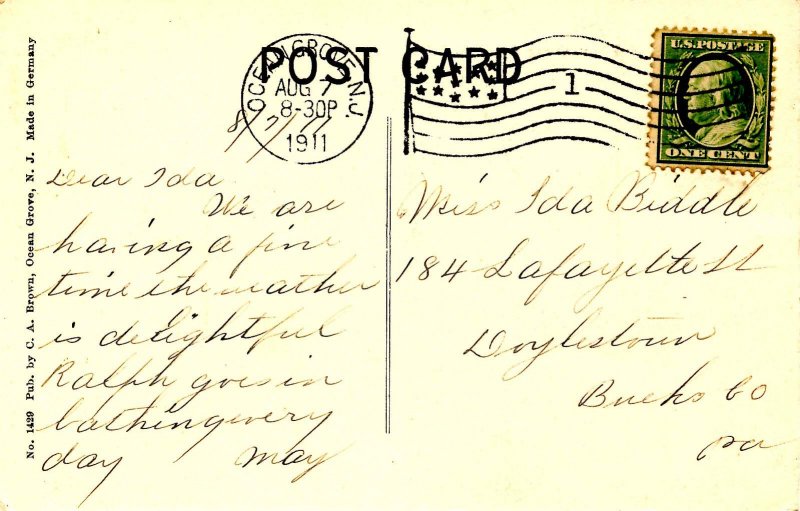 POST CARD
OCEAN GROVE, N.J.
AUG 7
8-30P
1911
1
U.S. POSTAGE
ONE CENT
8/7/11
Dear Ida
We are
having a fine
time the weather
is delightful
Ralph goes in
bathing every
day May
Miss Ida Biddle
184 Lafayette St
Doylestown
Bucks Co
Pa
No. 1429 Pub. by C. A. Brown, Ocean Grove, N. J. Made in Germany